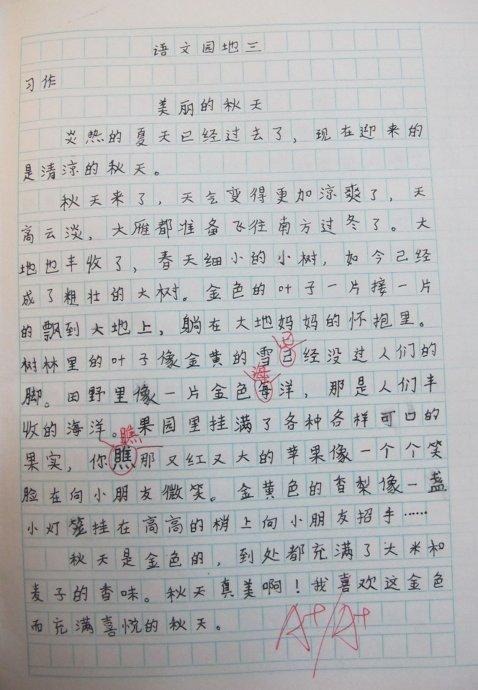 语文园地三
习作
美丽的秋天
炎热的夏天已经过去了，现在迎来的
是清凉的秋天。
秋天来了，天气变得更加凉爽了，天
高云淡，大雁都准备飞往南方过冬了。大
地也丰收了，春天细小的小树，如今已经
成了粗壮的大树。金色的叶子一片接一片
的飘到大地上，躺在大地妈妈的怀抱里。
已
树林里的叶子像金黄的雪己经没过人们的
海
脚。田野里像一片金色海洋，那是人们丰
收的海洋。果园里挂满了各种各样可口的
瞧
果实，你瞧那又红又大的苹果像一个个笑
脸在向小朋友微笑。金黄色的香梨像一盏
小灯笼挂在高高的梢上向小朋友招手……
秋天是金色的，到处都充满了大米和
麦子的香味。秋天真美啊！我喜欢这金色
而充满喜悦的秋天。
A+/A+